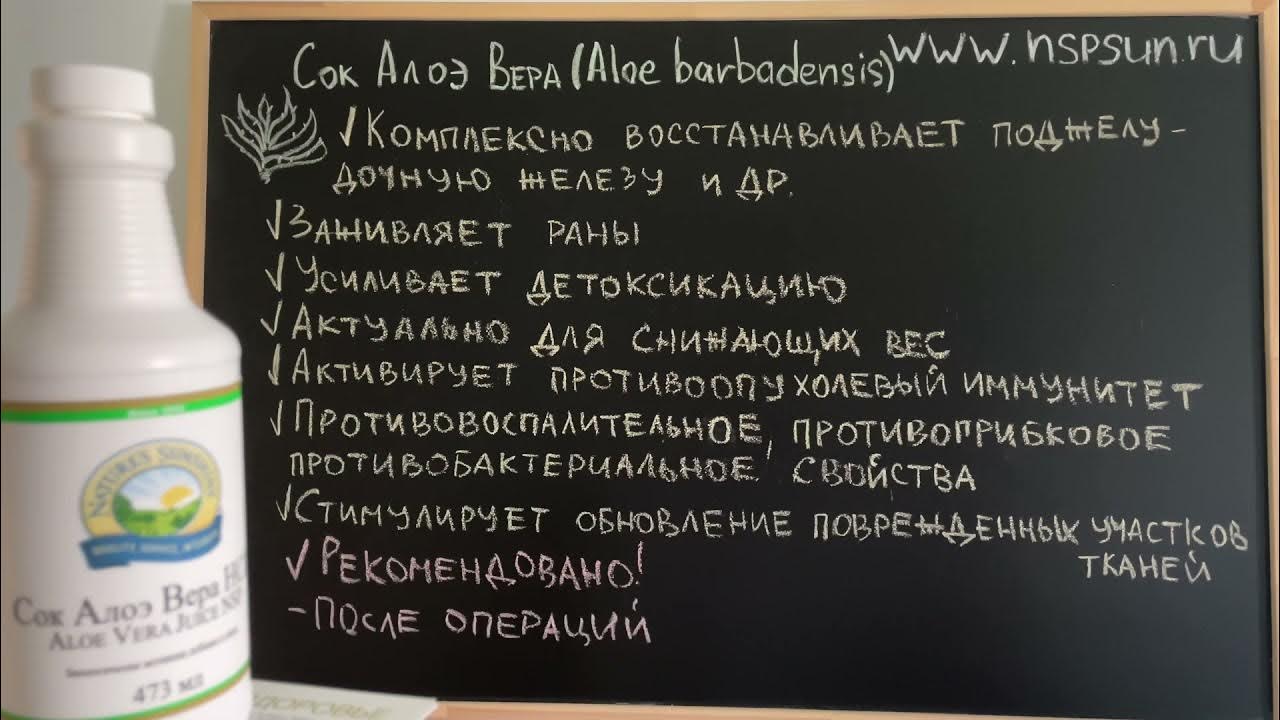 Сок Алоэ Вера (Aloe barbadensis)
www.nspsun.ru
✓Комплексно восстанавливает поджелу-
дочную железу и др.
✓Заживляет раны
✓Усиливает детоксикацию
✓Актуально для снижающих вес
✓Активирует противоопухолевый иммунитет
✓Противовоспалительное, противогрибковое,
противобактериальное свойства
✓Стимулирует обновление поврежденных участков
тканей
✓Рекомендовано!
-После операций
NATURE'S SUNSHINE
Сок Алоэ Вера
ALOE VERA JUICE NSP
473 мл
ЗДОРОВЬЕ